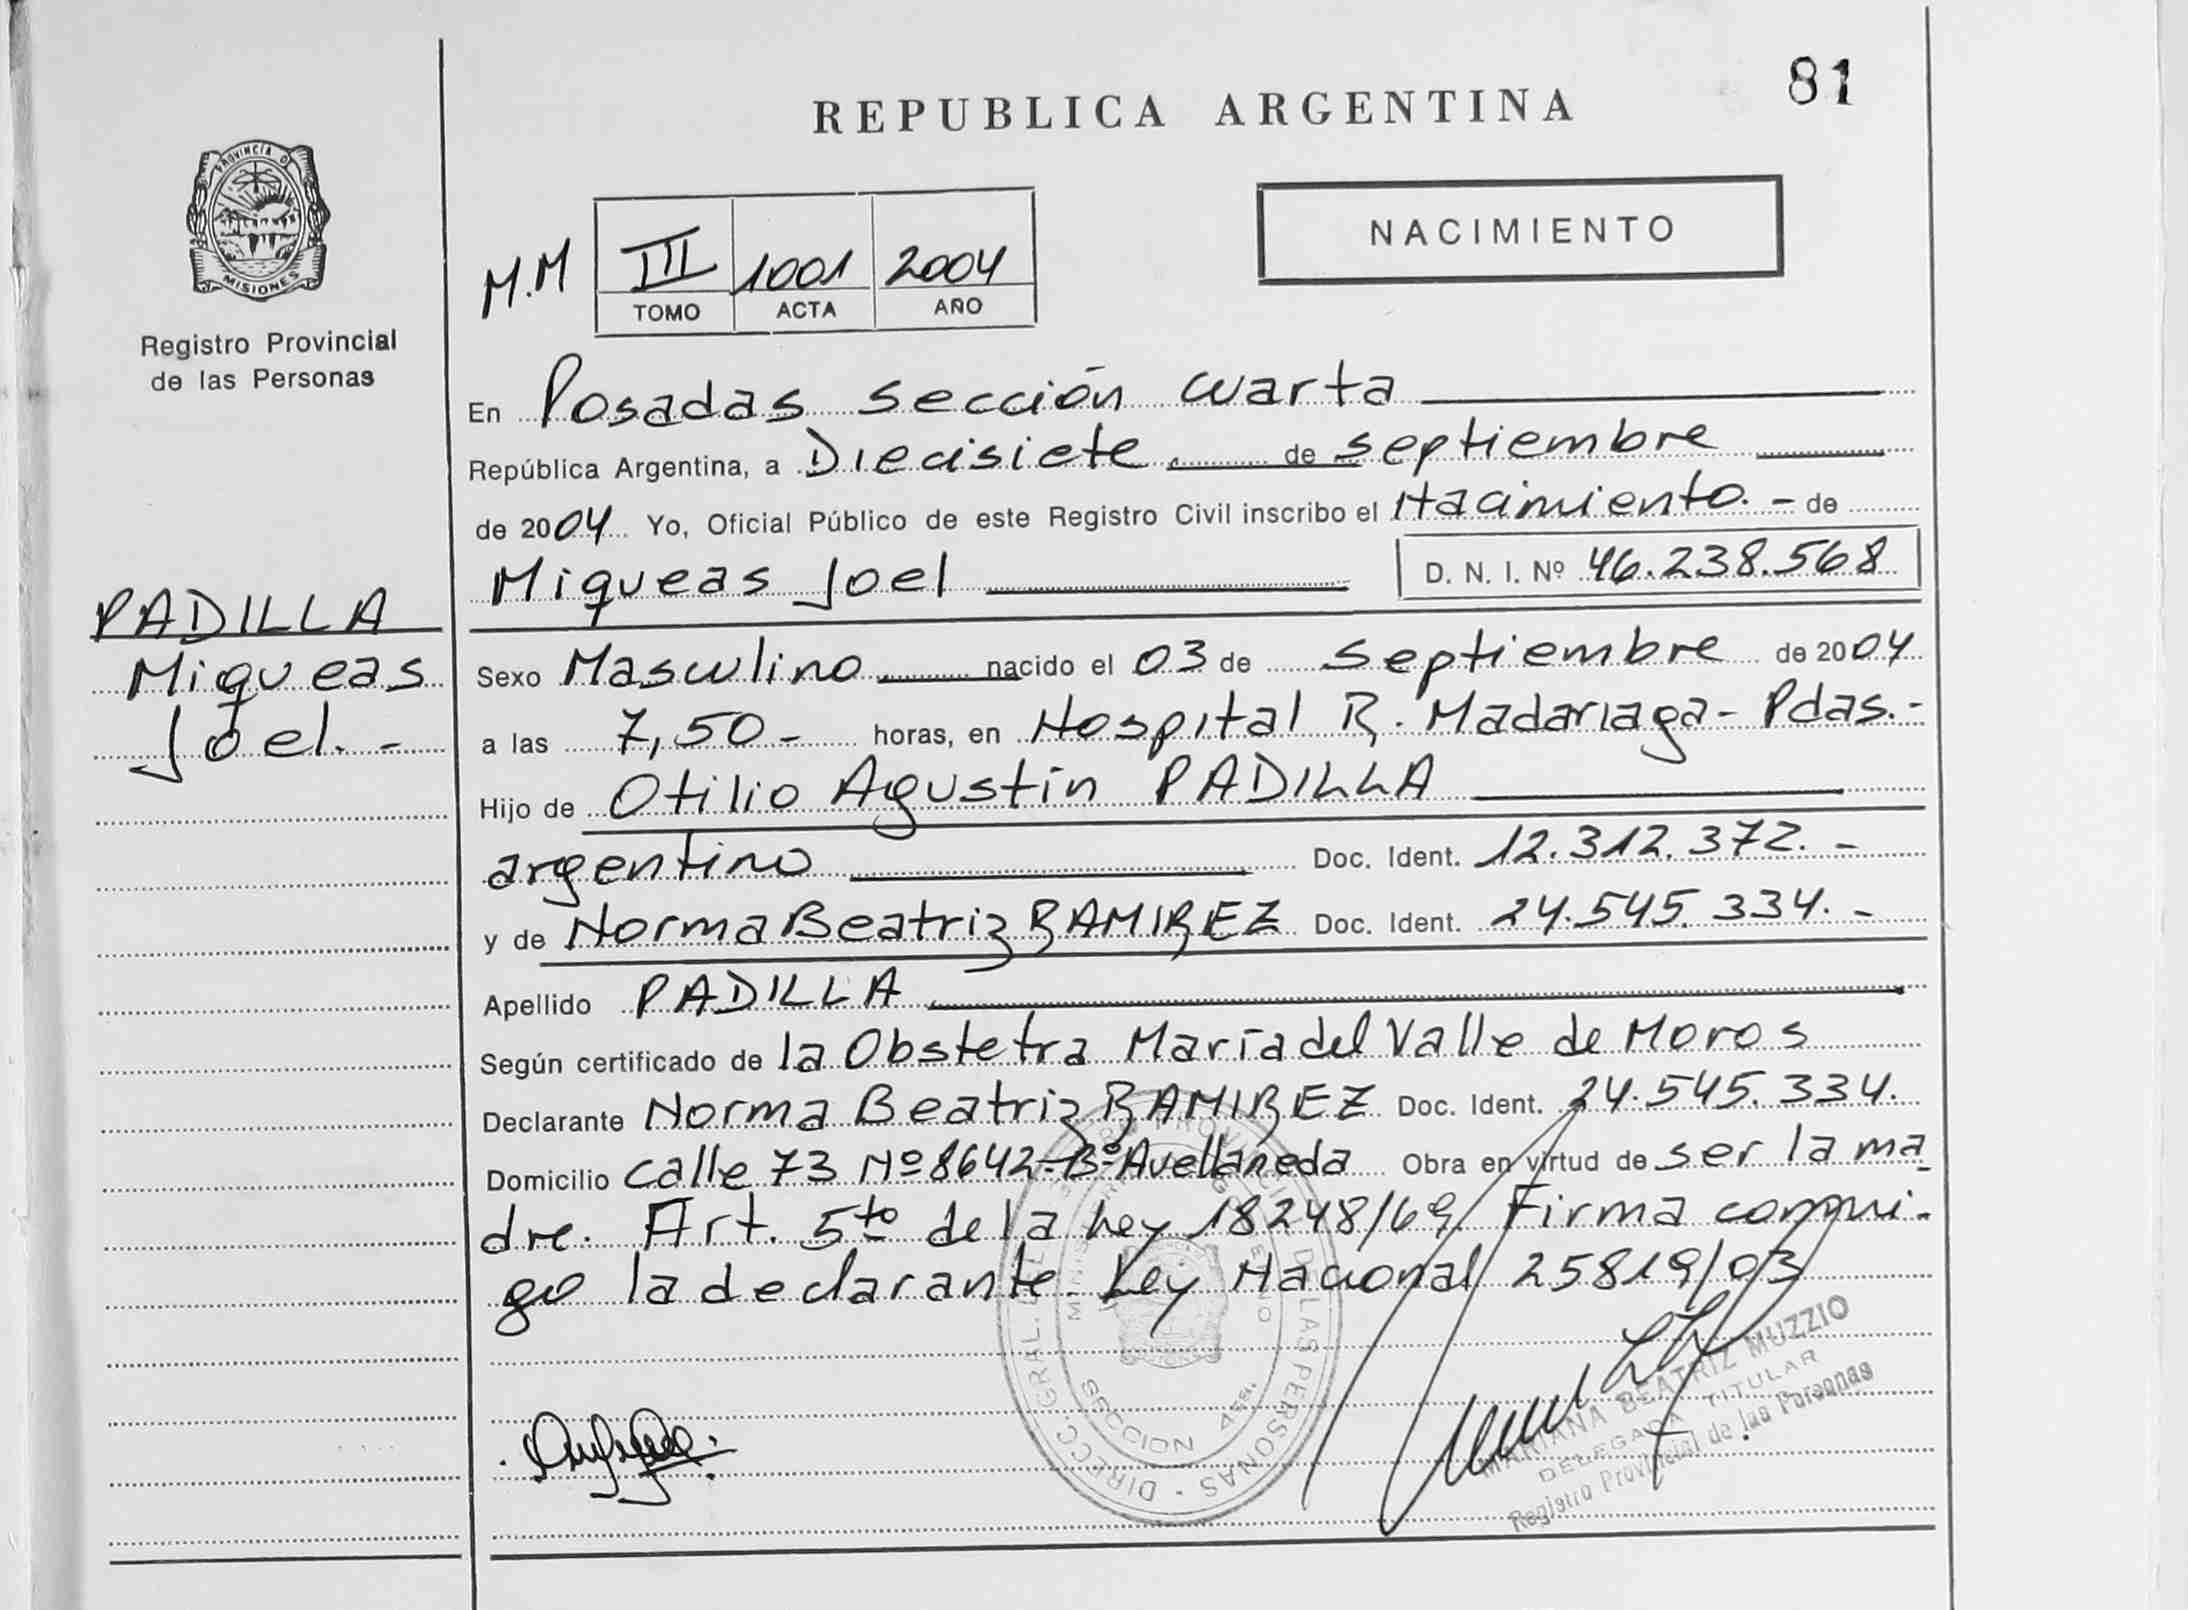 81
REPUBLICA ARGENTINA
NACIMIENTO
PROVINCIA D
MISIONES
Registro Provincial
de las Personas
M.M III 1001 2004
TOMO ACTA AÑO
En Posadas sección cuarta
República Argentina, a Diecisiete de septiembre
de 2004 Yo, Oficial Público de este Registro Civil inscribo el Nacimiento.- de
Miqueas Joel D. N. I. Nº 46.238.568
PADILLA
Miqueas
Joel.-
Sexo Masculino nacido el 03 de septiembre de 2004
a las 7,50- horas, en Hospital R. Madariaga- Pdas.-
Hijo de Otilio Agustín PADILLA
argentino Doc. Ident. 12.312.372.-
y de Norma Beatriz RAMIREZ Doc. Ident. 24.545.334.-
Apellido PADILLA
Según certificado de la Obstetra María del Valle de Moros
Declarante Norma Beatriz RAMIREZ Doc. Ident. 24.545.334.
Domicilio calle 73 Nº 8642-Bº Avellaneda Obra en virtud de ser la ma
dre. Art. 5to de la Ley 18248/69 Firma conmi-
go la declarante. Ley Nacional 25819/03
DIRECC. GRAL. DEL REGISTRO PROVINCIAL DE LAS PERSONAS
SECCION 4ta.
MARIANA BEATRIZ MUZZIO
DELEGADA TITULAR
Registro Provincial de las Personas